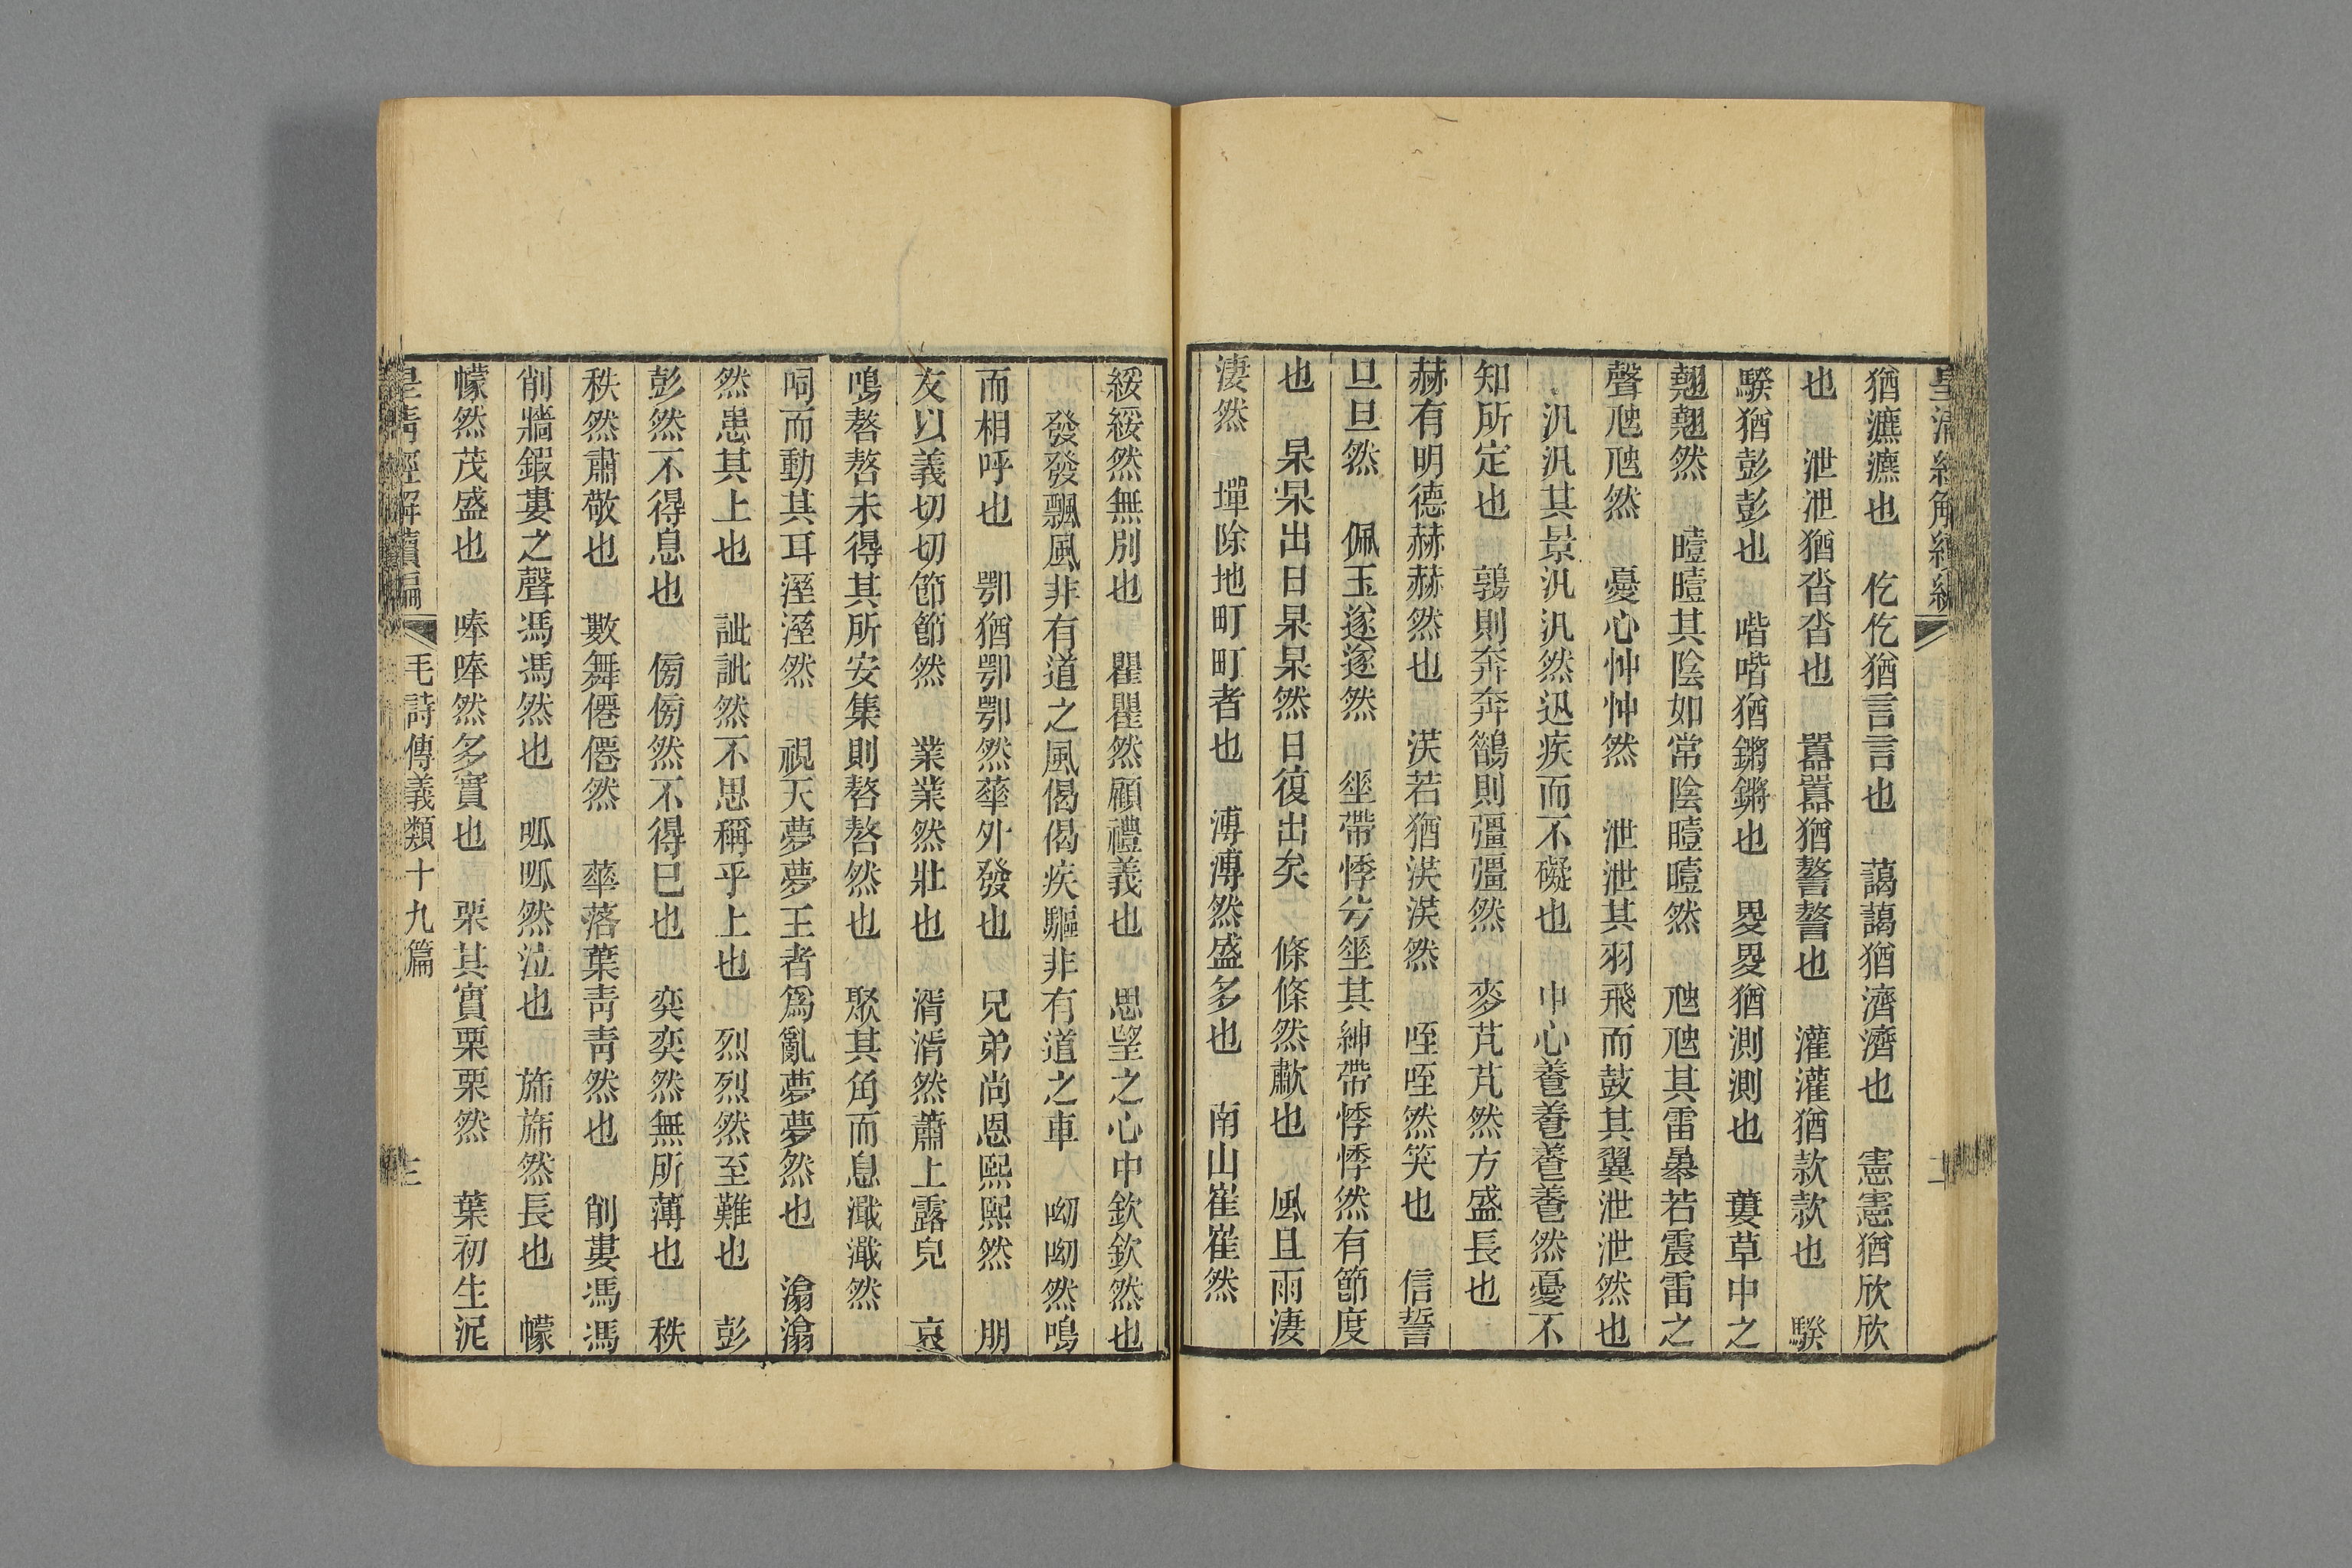 猶瀌瀌也　仡仡猶言言也　藹藹猶濟濟也　憲憲猶欣欣
也　泄泄猶沓沓也　囂囂猶警警也　灌灌猶款款也　騤
騤猶彭彭也　喈喈猶鏘鏘也　畟畟猶測測也　蔞草中之
翹翹然　曀曀其陰如常陰曀曀然　虺虺其雷暴若震雷之
聲虺虺然　憂心忡忡然　泄泄其羽飛而鼓其翼泄泄然也
汎汎其景汎汎然迅疾而不礙也　中心養養養養然憂不
知所定也　鶉則奔奔鵲則彊彊然　麥芃芃然方盛長也
赫有明德赫赫然也　淇若猶淇淇然　咥咥然笑也　信誓
旦旦然　佩玉遂遂然　垂帶悸兮垂其紳帶悸悸然有節度
也　杲杲出日杲杲然日復出矣　條條然歗也　風且雨淒
淒然　墠除地町町者也　漙漙然盛多也　南山崔崔然
綏綏然無別也　瞿瞿然顧禮義也　思望之心中欽欽然也
發發飄風非有道之風偈偈疾驅非有道之車　呦呦然鳴
而相呼也　鄂猶鄂鄂然華外發也　兄弟尚恩熙熙然　朋
友以義切切節節然　業業然壯也　湑湑然蕭上露皃　哀
鳴嗸嗸未得其所安集則嗸嗸然也　聚其角而息濈濈然
呞而動其耳溼溼然　視天夢夢王者爲亂夢夢然也　潝潝
然患其上也　訿訿然不思稱乎上也　烈烈然至難也　彭
彭然不得息也　傍傍然不得已也　奕奕然無所薄也　秩
秩然肅敬也　數舞僊僊然　華落葉靑靑然也　削婁馮馮
削牆鍛婁之聲馮馮然也　呱呱然泣也　旆旆然長也　幪
幪然茂盛也　唪唪然多實也　栗其實栗栗然　葉初生泥
皇淸經解續編　毛詩傳義類十九篇